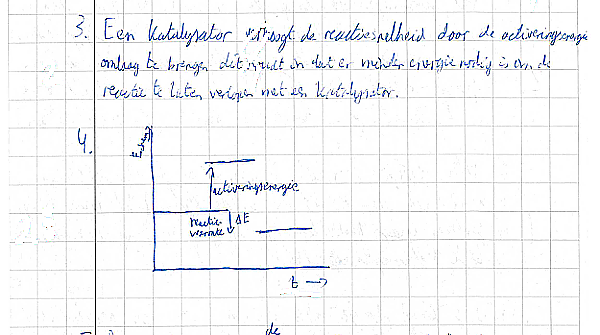 3. Een katalysator verhoogt de reactiesnelheid door de activeringsenergie
omlaag te brengen dit houdt in dat er minder energie nodig is om de
reactie te laten verlopen met een katalysator.
4.
activeringsenergie
ΔE
reactie
warmte
t →
de